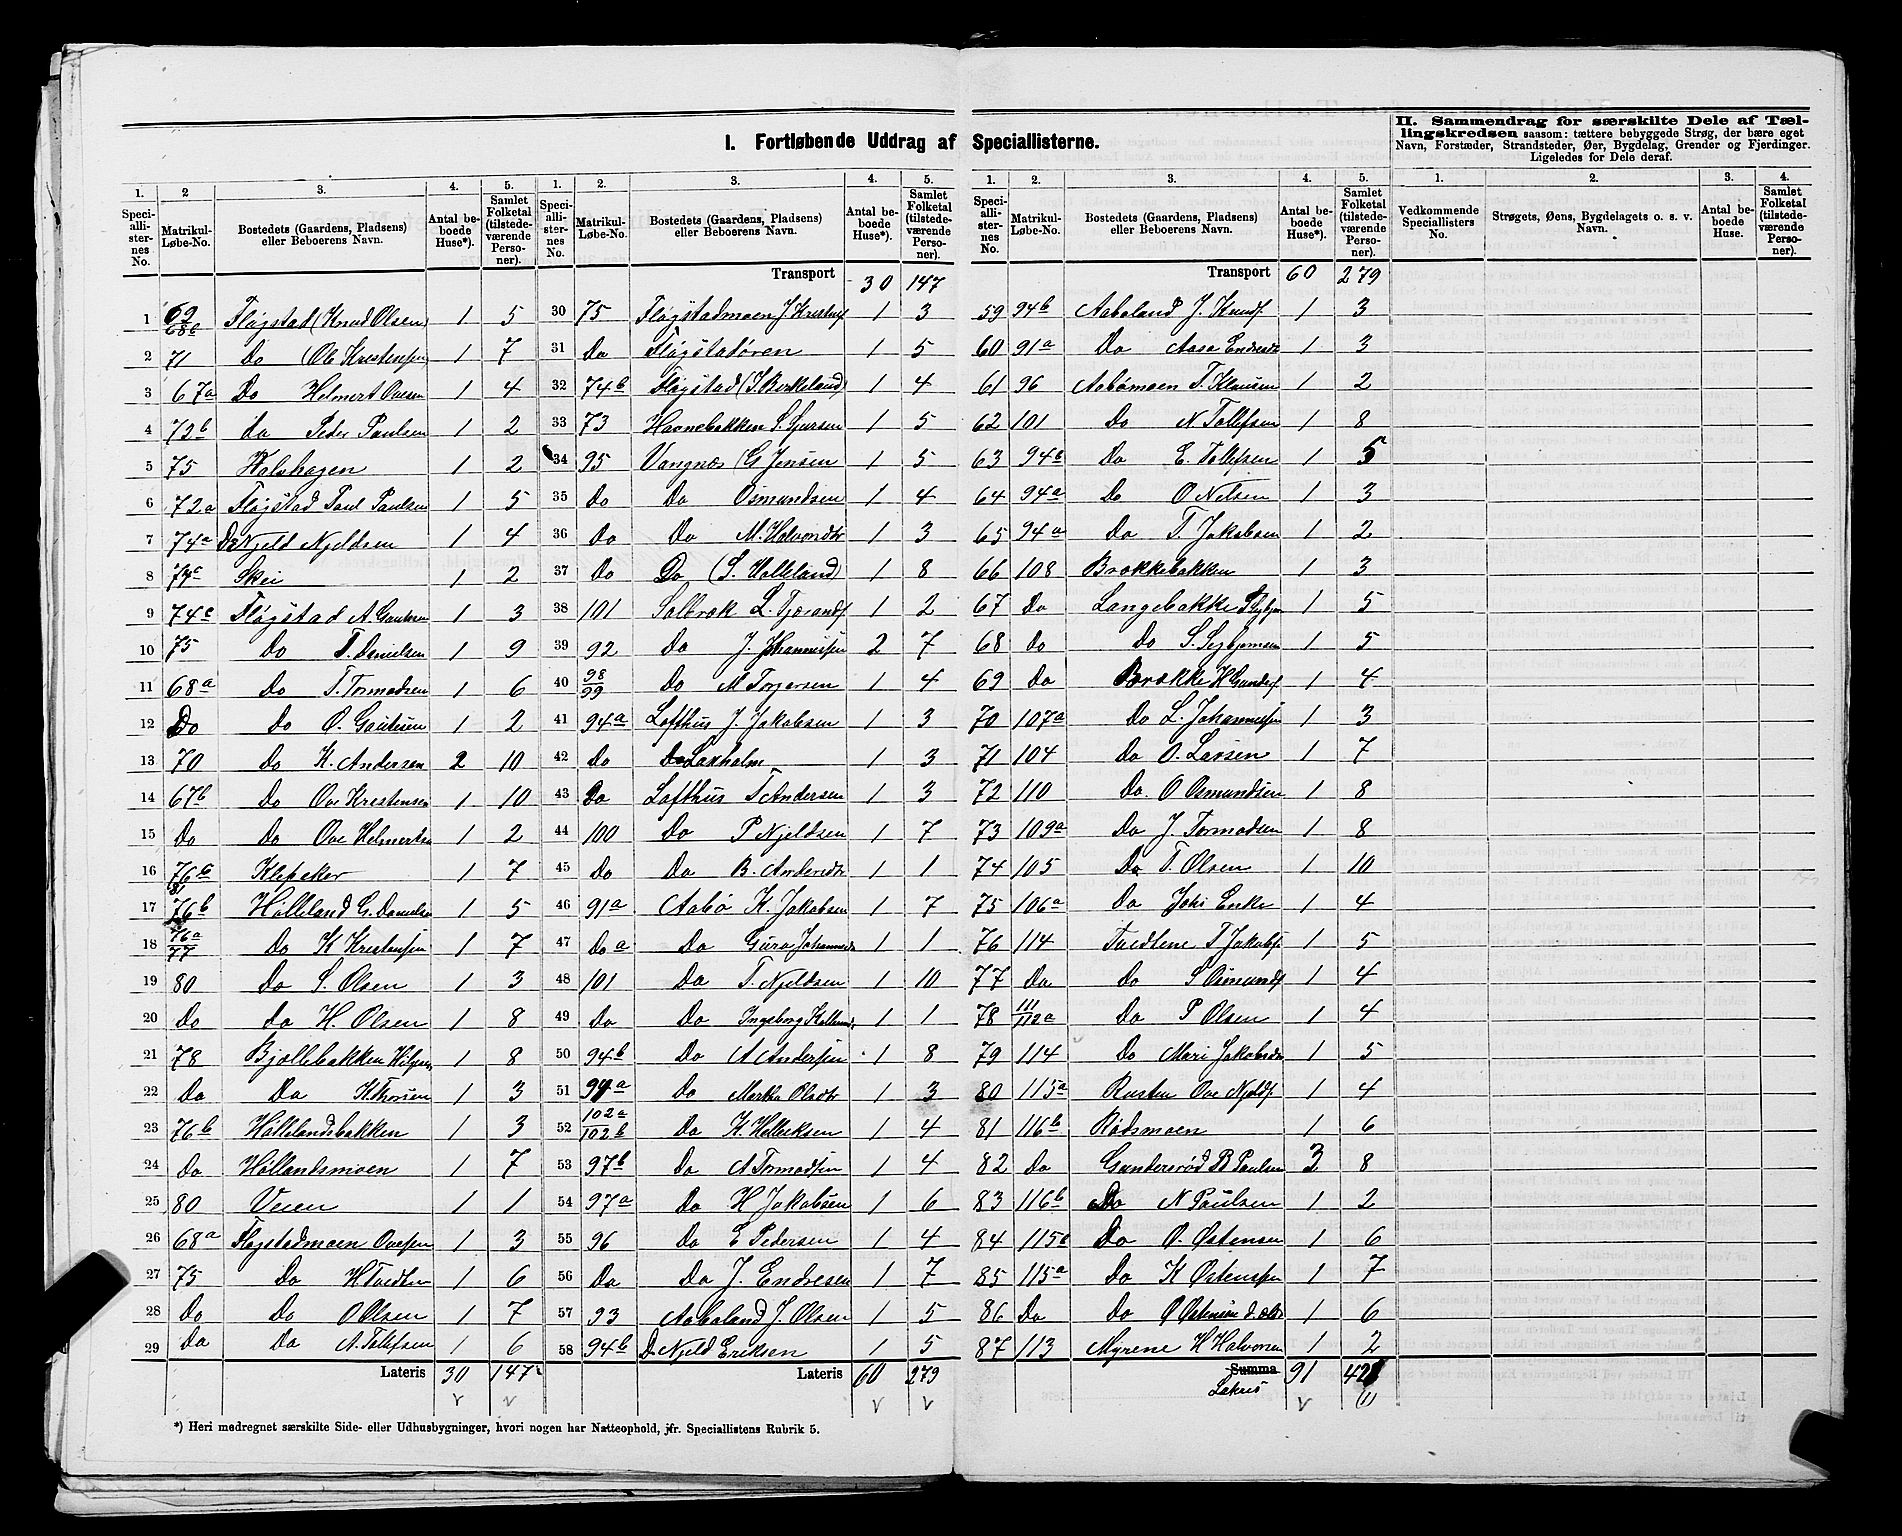 I. Fortløbende Uddrag af Speciallisterne.
II. Sammendrag for særskilte Dele af Tællingskredsen saasom: tættere bebyggede Strøg, der bære eget
Navn, Forstæder, Strandsteder, Øer, Bygdelag, Grender og Fjerdinger.
Ligeledes for Dele deraf.
1. 2 3. 4. 5.
Speciallisternes No. Matrikul-Løbe-No. Bostedets (Gaardens, Pladsens) eller Beboerens Navn. Antal beboede Huse*). Samlet Folketal (tilstedeværende Personer).
1 69/68a Fløgstad (Knud Olsen) 1 5
2 71 Do (Ole Krestensen 1 7
3 67a Do Helmert Ovesen 1 4
4 72b do Peder Paulsen 1 2
5 75 Halvhagen 1 2
6 72a Fløgstad Paul Paulsen 1 5
7 74a Do Njeld Njeldsen 1 4
8 74c Skei 1 2
9 74c Fløgstad A. Gautesen 1 3
10 75 Do T. Danielsen 1 9
11 68a Do T. Tormodsen 1 6
12 Do Do O. Gautesen 1 2
13 70 Do K. Andersen 2 10
14 67b Do Ove Krestensen 1 10
15 Do Do Ove Helmertsen 1 2
16 76b Klepaker 1 7
17 76b Hølleland G. Danielsen 1 5
18 76a/77 Do K Krestensen 1 7
19 80 Do S. Olsen 1 3
20 Do do H. Olsen 1 8
21 78 Bjøllebakken 1 8
22 Do Do K Thorsen 1 3
23 76b Høllelandsbakken 1 3
24 Do Høllandsmoen 1 7
25 80 Veien 1 1
26 68a Fløgstadmoen Ovesen 1 3
27 75 Do H Tvedten 1 6
28 Do Do O Olsen 1 7
29 Do Do A. Tollefsen 1 6
Lateris 30 147
1. 2. 3. 4. 5.
Speciallisternes No. Matrikul-Løbe-No. Bostedets (Gaardens, Pladsens) eller Beboerens Navn. Antal beboede Huse*). Samlet Folketal (tilstedeværende Personer).
Transport 30 147
30 75 Fløgstadmoen J. Krestens 1 3
31 Do Fløgstadøren 1 5
32 74b Fløgstad (S. Birkeland) 1 4
33 73 Havnebakken S. Sjursen 1 5
34 95 Vangnes G Jensen 1 5
35 Do Do Osmundsen 1 4
36 Do Do M. Halvorsdtr 1 3
37 Do Do (S. Helleland) 1 8
38 101 Solbræk L. Tjerands 1 2
39 92 Do J. Johannessen 2 7
40 98/99 Do M Torgersen 1 4
41 94a Lofthus J. Jakobsen 1 3
42 Do Do Laxholm 1 3
43 Do Lofthus T Andersen 1 3
44 100 Do P Njeldsen 1 7
45 Do Do B. Andersdtr 1 1
46 91a Aabø K. Jakobsen 1 7
47 Do a Do Guro Johannesdtr 1 1
48 101 Do T. Njeldsen 1 10
49 Do Do Ingeborg 1 1
50 94b Do A Andersen 1 8
51 94a Do Martha Olsdtr 1 3
52 102a/102b Do K. Helliksen 1 4
53 97b Do A Tormodsen 1 4
54 97a Do H Jakobsen 1 6
55 96 Do E Pedersen 1 4
56 Do Do J. Endresen 1 7
57 93 Aabøland J. Olsen 1 5
58 94b Do Njeld Eriksen 1 5
Lateris 60 279
*) Heri medregnet særskilte Side- eller Udhusbygninger, hvori nogen har Natteophold, jfr. Speciallistens Rubrik 5.
1. 2. 3. 4. 5.
Speciallisternes No. Matrikul-Løbe-No. Bostedets (Gaardens, Pladsens) eller Beboerens Navn. Antal beboede Huse*). Samlet Folketal (tilstedeværende Personer).
Transport 60 279
59 94b Aabøland J. Knuds 1 3
60 91a Do Aasa Endresdtr 1 3
61 96 Aabømoen T. Klausen 1 2
62 101 Do N Tollefsen 1 8
63 94b Do E. Tollefsen 1 5
64 94a Do O Nelsen 1 3
65 94a Do T. Jakobsen 1 2
66 108 Brækkebakken 1 3
67 Do Langebakke 1 5
68 Do Do S. Segbjørnsen 1 5
69 Do Brække H Gunders 1 4
70 107a Do L. Johannessen 1 3
71 104 Do O. Larsen 1 7
72 110 Do O Osmundsen 1 8
73 109a Do J. Tormodsen 1 8
74 105 Do T. Olsen 1 10
75 106a Do Johs Enke 1 4
76 114 Tvedtene T Jakobs 1 5
77 Do Do S Osmunds 1 4
78 111/112a Do P Olsen 1 4
79 114 Do Mari Jakobsdtr 1 5
80 115a Rusten Ove Njelds 1 4
81 116b Rødsmoen 1 6
82 Do Gundersrød P Paulsen 3 8
83 116b Do N Paulsen 1 2
84 115a Do O. Østensen 1 6
85 115a Do K Østensen 1 7
86 Do Do O Østensen d. æld 1 6
87 113 Myrene H Halvorsen 1 2
Summa Lateris 91 421
(1)
1. 2. 3. 4.
Vedkommende Speciallisters No. Strøgets, Øens, Bygdelagets o. s. v. Navn. Antal beboede Huse. Samlet Folketal (tilstedeværende Personer).